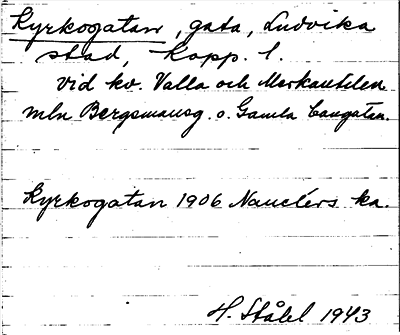 Kyrkogatan, gata, Ludvika
stad, Kopp. l.
Vid kv. Valla och Merkantilen
mln Bergsmansg. o. Gamla Cangatan.
Kyrkogatan 1906 Nauclérs ka.
H. Ståhl 1943